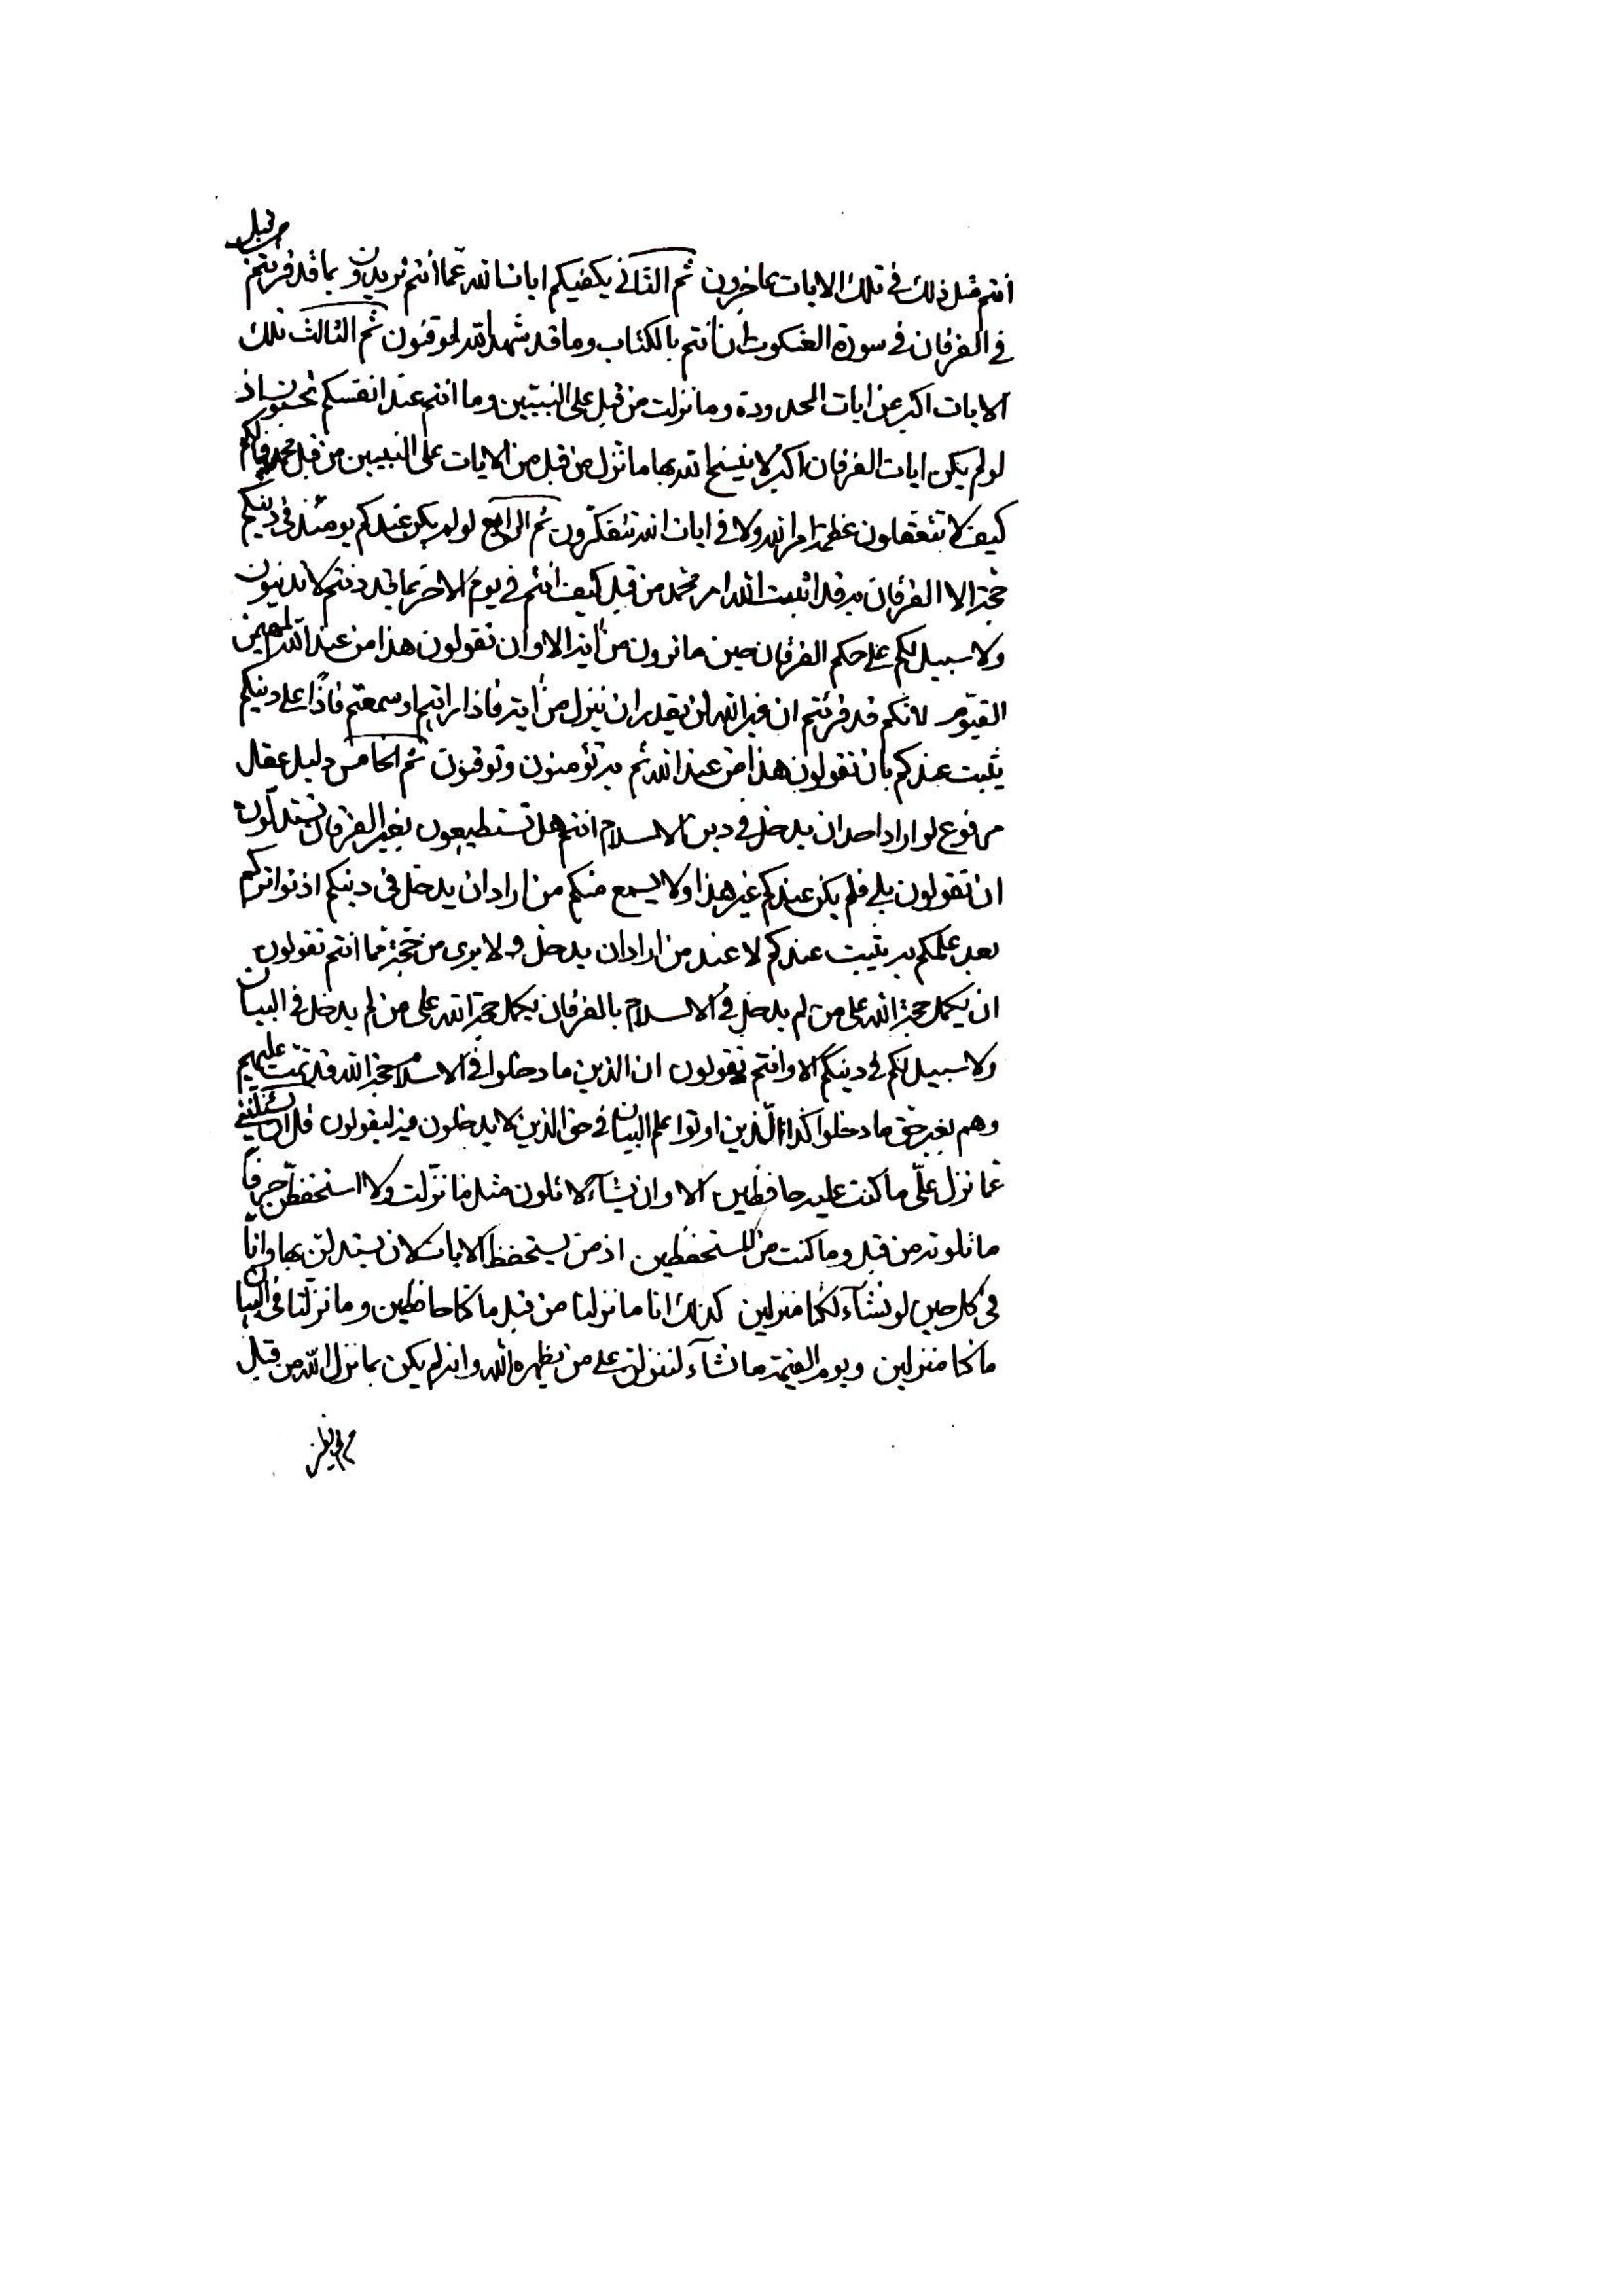 انتم مثل ذلك في تلك الايات عاجزون ثم الثاني يكفيكم ايات الله عما انتم تريدون بما قد قرئتم من قبل
في الفرقان في سورة العنكبوت ان انتم بالكتاب وما قد شهد الله لموقنون ثم الثالث تلك
الايات اكبر عن ايات المحدودة وما نزلت من قبل على النبيين وما انتم عند انفسكم تحسبون اذ
لو لم يكن ايات الفرقان اكبر لا ينسخ الله بها ما نزل من قبل من الايات على النبيين من قبل محمد
كيف لا تتعقلون عظمة امر الله ولا في ايات الله تتفكرون ثم الرابع لو لم يكن عندكم يومئذ في دينكم
حجة الا الفرقان به قد اثبت الله امر محمد من قبل كيف انتم في يوم الاخر بما قد دنتم لا تدينون
ولا سبيل لكم على حكم الفرقان حين ما ترون من اية الا وان تقولون هذا من عند الله المهيمن
القيوم لانكم قد قرئتم ان غير الله لن يقدر ان ينزل من اية فاذا رايتم او سمعتم فاذا على دينكم
يثبت عندكم بان تقولون هذا من عند الله ثم به تؤمنون وتوقنون ثم الخامس دليل عقل
مرفوع لو اراد احد ان يدخل في دين الاسلام انتم هل تستطيعون بغير الفرقان تستدلون
ان تقولون بلى فلم يكن عندكم غير هذا ولا يسمع منكم من اراد ان يدخل في دينكم اذ تواتركم
بعد علمكم به يثبت عندكم لا عند من اراد ان يدخل ولا يرى من حجة فما انتم تقولون
ان يكمل حجة الله على من لم يدخل في الاسلام بالفرقان يكمل حجة الله على من لم يدخل في البيان
ولا سبيل لكم في دينكم الا وانتم تقولون ان الذين ما دخلوا في الاسلام حجة الله قد تمت عليهم
وهم بغير حق ما دخلوا كذلك الذين اوتوا علم البيان في حق الذين لا يدخلون فيه ليقولون قل ان تسئلني
عما نزل علي ما كنت عليه حافظين الا وان يشاء لاتلون مثل ما نزلت ولا استحفظن حرفا
ما تلوته من قبل وما كنت من المستحفظين اذ من يستحفظ الايات لان يستدلن بها وانا
في كل حين لو نشاء لكنا منزلين كذلك انا ما نزلنا من قبل ما كنا حافظين وما نزلنا في البيان
ما كنا منزلين ويوم القيمة ما نشاء لننزلن على من يظهره الله وانه لم يكن بما نزل الله من قبل